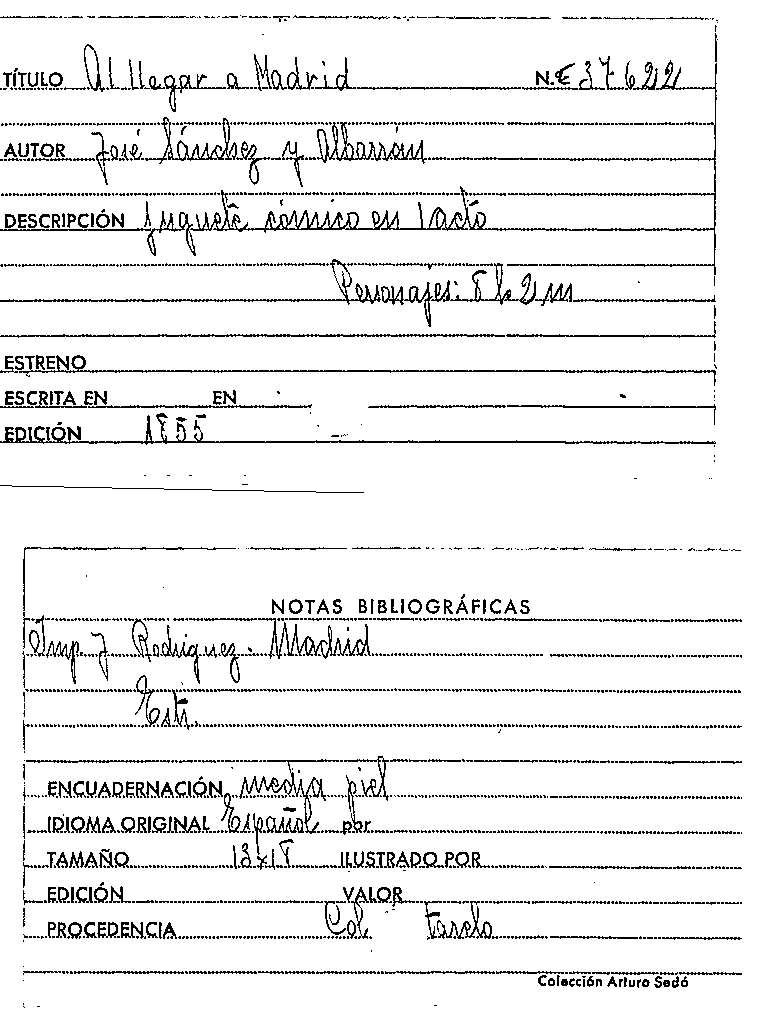 TÍTULO Al llegar a Madrid N.º 37622
AUTOR José Sánchez y Albarrán
DESCRIPCIÓN Juguete cómico en 1 acto
Personajes: 8 h 2 m
ESTRENO
ESCRITA EN EN
EDICIÓN 1855
NOTAS BIBLIOGRÁFICAS
Imp. J Rodriguez. Madrid
ENCUADERNACIÓN media piel
IDIOMA ORIGINAL Español por
TAMAÑO 13x18 ILUSTRADO POR
EDICIÓN VALOR
PROCEDENCIA Col.
Colección Arturo Sedó